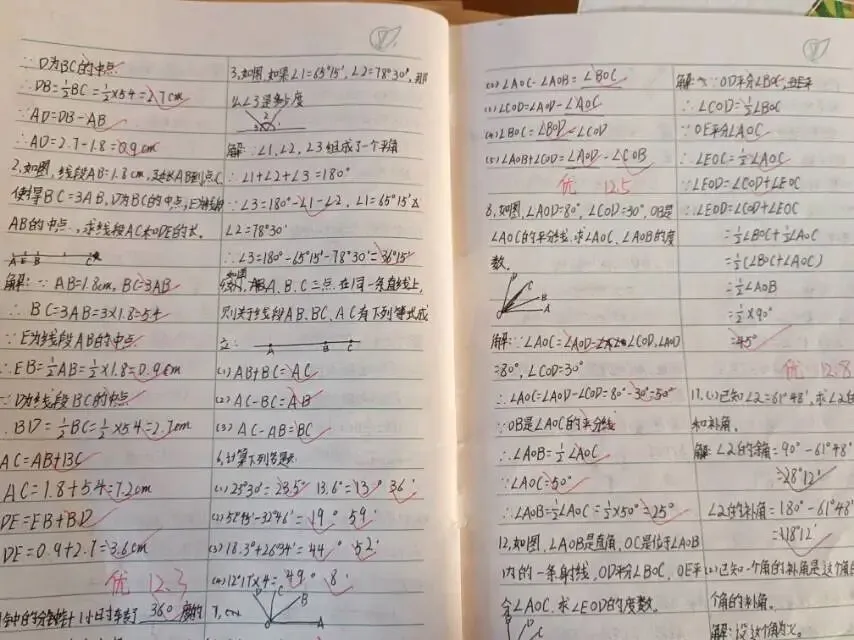 ∵D为BC的中点
∴DB=½BC=½×5.4=2.7cm
∵AD=DB-AB
∴AD=2.7-1.8=0.9cm
2.如图,线段AB=1.8cm,延长AB到点C
使得BC=3AB,D为BC的中点,E为线段
AB的中点,求线段AC和DE的长。
A E B C
解:∵AB=1.8cm,BC=3AB
∴BC=3AB=3×1.8=5.4
∵E为线段AB的中点
∴EB=½AB=½×1.8=0.9cm
∵D为线段BC的中点
∴BD=½BC=½×5.4=2.7cm
AC=AB+BC
AC=1.8+5.4=7.2cm
DE=EB+BD
DE=0.9+2.7=3.6cm
优 12.3
1小时转了360度的
3.如图,如果∠1=65°15′,∠2=78°30′,那
么∠3是多少度
解:∵∠1,∠2,∠3组成了一个平角
∴∠1+∠2+∠3=180°
∠3=180°-∠1-∠2,∠1=65°15′
∠2=78°30′
∴∠3=180°-65°15′-78°30′=36°15′
如图
A、B、C三点在同一条直线上,
则关于线段AB、BC、AC有下列等式成
立:
A B C
(1)AB+BC=AC
(2)AC-BC=AB
(3)AC-AB=BC
6.计算下列各题:
(1)23°30′=23.5° 13.6°=13° 36′
(2)52°45′-32°46′=19° 59′
(3)18.3°+26°34′=44° 52′
(4)12°17′×4=49° 8′
7.
(2)∠AOC-∠AOB=∠BOC
(3)∠COD=∠AOD-∠AOC
(4)∠BOC=∠BOD-∠COD
(5)∠AOB+∠COD=∠AOD-∠COB
优 12.5
8.如图,∠AOD=80°,∠COD=30°,OB是
∠AOC的平分线,求∠AOC、∠AOB的度
数。
D C B A
解:∵∠AOC=∠AOD-∠COD,∠AOD
=80°,∠COD=30°
∴∠AOC=∠AOD-∠COD=80°-30°=50°
∵OB是∠AOC的平分线
∴∠AOB=½∠AOC
∵∠AOC=50°
∴∠AOB=½∠AOC=½×50°=25°
12.如图,∠AOB是直角,OC是位于∠AOB
内的一条射线,OD平分∠BOC,OE平
分∠AOC,求∠EOD的度数。
解:∵OD平分∠BOC,
∴∠COD=½∠BOC
∵OE平分∠AOC
∴∠EOC=½∠AOC
∵∠EOD=∠COD+∠EOC
∴∠EOD=∠COD+∠EOC
=½∠BOC+½∠AOC
=½(∠BOC+∠AOC)
=½∠AOB
=½×90°
=45°
优 12.8
11.(1)已知∠2=61°48′,求∠2的
和补角。
解:∠2的余角=90°-61°48′
=28°12′
∠2的补角=180°-61°48′
=118°12′
(2)已知一个角的补角是这个角的
个角的补角。
解:设这个角为x。